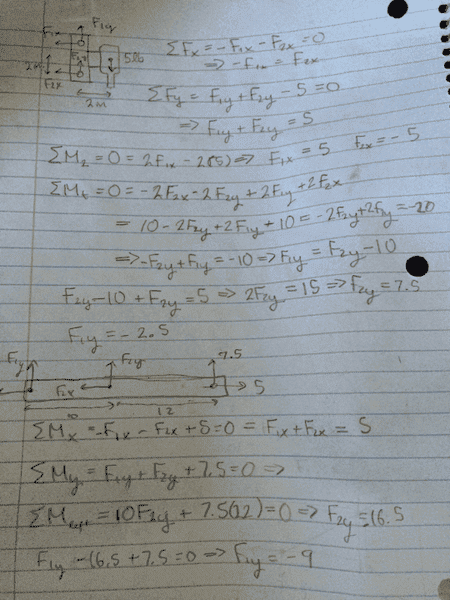 F₁y
F₁x
5lb
2m
F₂x
2m
ΣFx = -F₁x - F₂x = 0
⇒ -F₁x = F₂x
ΣFy = F₁y + F₂y - 5 = 0
⇒ F₁y + F₂y = 5
ΣM₂ = 0 = 2F₁x - 2(5) ⇒ F₁x = 5 F₂x = -5
ΣM₁ = 0 = -2F₂x - 2F₂y + 2F₁y + 2F₂x
= 10 - 2F₂y + 2F₁y + 10 = -2F₂y + 2F₁y = -20
⇒ -F₂y + F₁y = -10 ⇒ F₁y = F₂y - 10
F₂y - 10 + F₂y = 5 ⇒ 2F₂y = 15 ⇒ F₂y = 7.5
F₁y = -2.5
F₁y F₂y 7.5
F₂x 5
10 12
ΣMx = -F₁x - F₂x + 5 = 0 = F₁x + F₂x = 5
ΣMy = F₁y + F₂y + 7.5 = 0 ⇒
= 10F₂y + 7.5(12) = 0 ⇒ F₂y = 16.5
F₁y - 16.5 + 7.5 = 0 ⇒ F₁y = -9